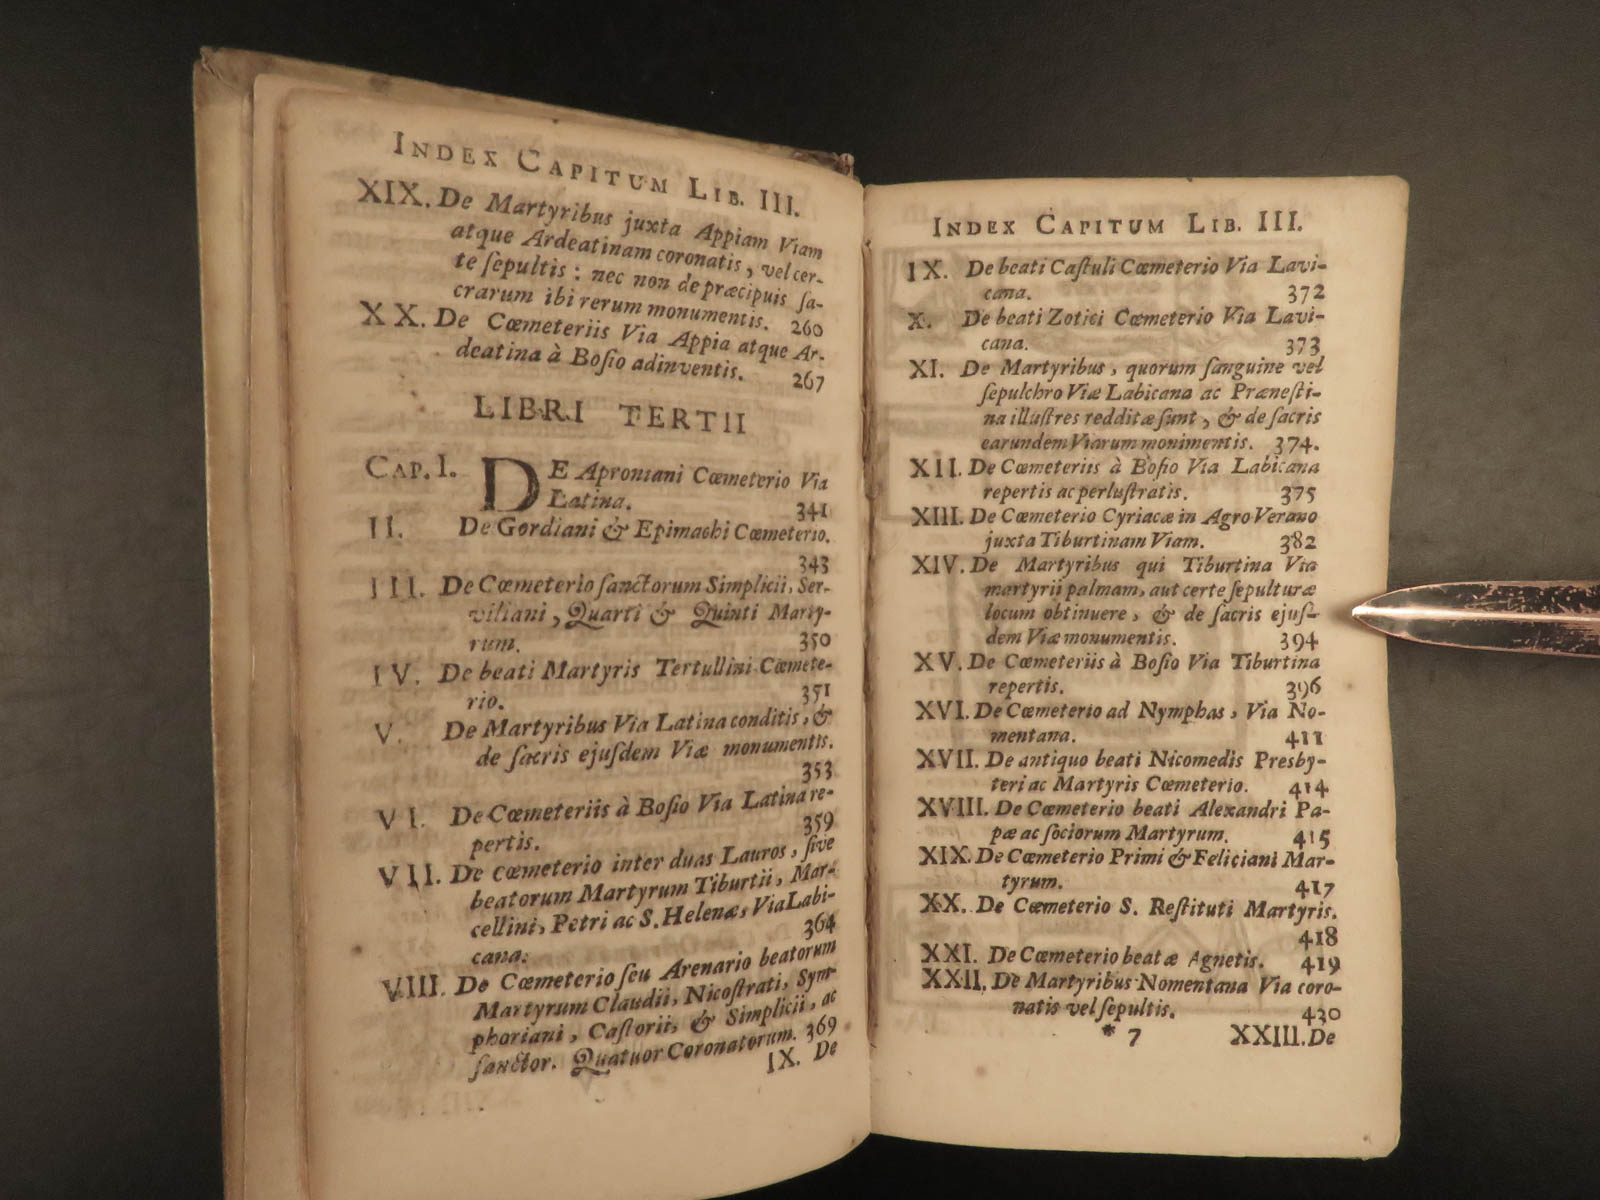 INDEX CAPITUM LIB. III.
XIX. De Martyribus juxta Appiam Viam
atque Ardeatinam coronatis, vel cer-
te ſepultis: nec non de præcipuis ſa-
crarum ibi rerum monumentis. 260
XX. De Cœmeteriis Via Appia atque Ar-
deatina à Boſio adinventis. 267
LIBRI TERTII
CAP. I. DE Aproniani Cœmeterio Via
Latina. 341
II. De Gordiani & Epimachi Cœmeterio.
343
III. De Cœmeterio ſanctorum Simplicii, Ser-
viliani, Quarti & Quinti Marty-
rum. 350
IV. De beati Martyris Tertullini Cœmete-
rio. 351
V. De Martyribus Via Latina conditis, &
de ſacris ejuſdem Viæ monumentis.
353
VI. De Cœmeteriis à Boſio Via Latina re-
pertis. 359
VII. De Cœmeterio inter duas Lauros, ſive
beatorum Martyrum Tiburtii, Mar-
cellini, Petri ac S. Helenæ, Via Labi-
cana. 364
VIII. De Cœmeterio ſeu Arenario beatorum
Martyrum Claudii, Nicoſtrati, Sym-
phoriani, Caſtorii, & Simplicii, ac
ſanctor. Quatuor Coronatorum. 369
IX. De
INDEX CAPITUM LIB. III.
IX. De beati Caſtuli Cœmeterio Via Lavi-
cana. 372
X. De beati Zotici Cœmeterio Via Lavi-
cana. 373
XI. De Martyribus, quorum ſanguine vel
ſepulchro Viæ Labicana ac Præneſti-
na illuſtres redditæ ſunt, & de ſacris
earundem Viarum monimentis. 374.
XII. De Cœmeteriis à Boſio Via Labicana
repertis ac perluſtratis. 375
XIII. De Cœmeterio Cyriacæ in Agro Verano
juxta Tiburtinam Viam. 382
XIV. De Martyribus qui Tiburtina Via
martyrii palmam, aut certe ſepulturæ
locum obtinuere, & de ſacris ejuſ-
dem Viæ monumentis. 394
XV. De Cœmeteriis à Boſio Via Tiburtina
repertis. 396
XVI. De Cœmeterio ad Nymphas, Via No-
mentana. 411
XVII. De antiquo beati Nicomedis Presby-
teri ac Martyris Cœmeterio. 414
XVIII. De Cœmeterio beati Alexandri Pa-
pæ ac ſociorum Martyrum. 415
XIX. De Cœmeterio Primi & Feliciani Mar-
tyrum. 417
XX. De Cœmeterio S. Reſtituti Martyris.
418
XXI. De Cœmeterio beatæ Agnetis. 419
XXII. De Martyribus Nomentana Via coro-
natis vel ſepultis. 430
* 7 XXIII. De